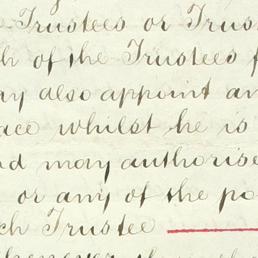 Trustees or Trus
h of the Trustees f
ay also appoint an
ace whilst he is
nd may authorise
or any of the po
ch Trustee